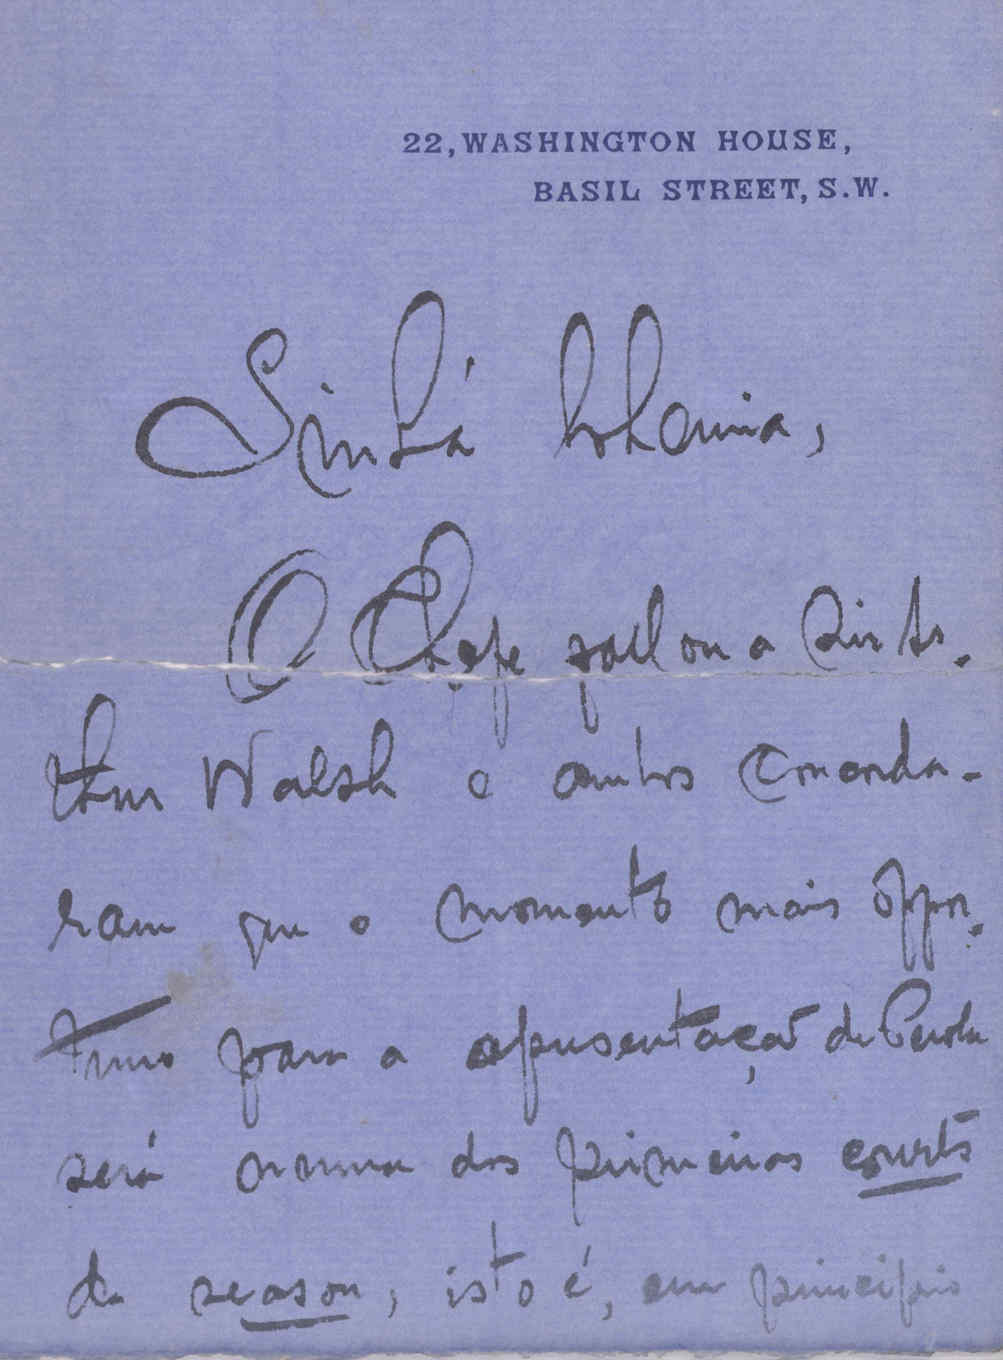 22, WASHINGTON HOUSE,
BASIL STREET, S.W.
Sinhá bohemia,
O Chefe fallou a Sir Ar-
thur Walsh e ambos concorda-
ram que o momento mais oppor-
tuno para a apresentação de Perola
será numa das primeiras courts
da season, isto é, em principio